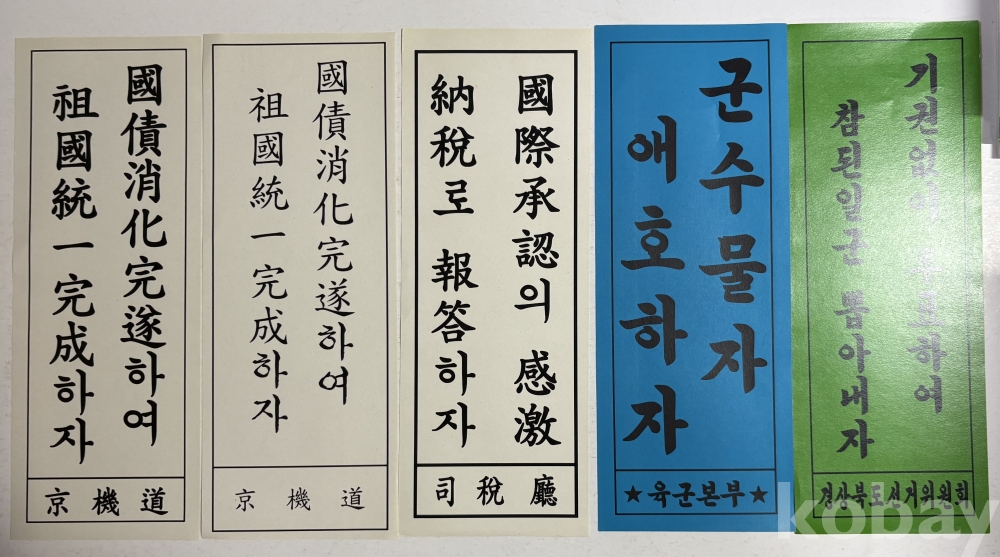 國債消化完遂하여
祖國統一完成하자
京機道
國債消化完遂하여
祖國統一完成하자
京機道
國際承認의 感激
納稅로 報答하자
司稅廳
군수물자
애호하자
★육군본부★
기권없이 투표하여
참된일군 뽑아내자
경상북도선거위원회
kobay